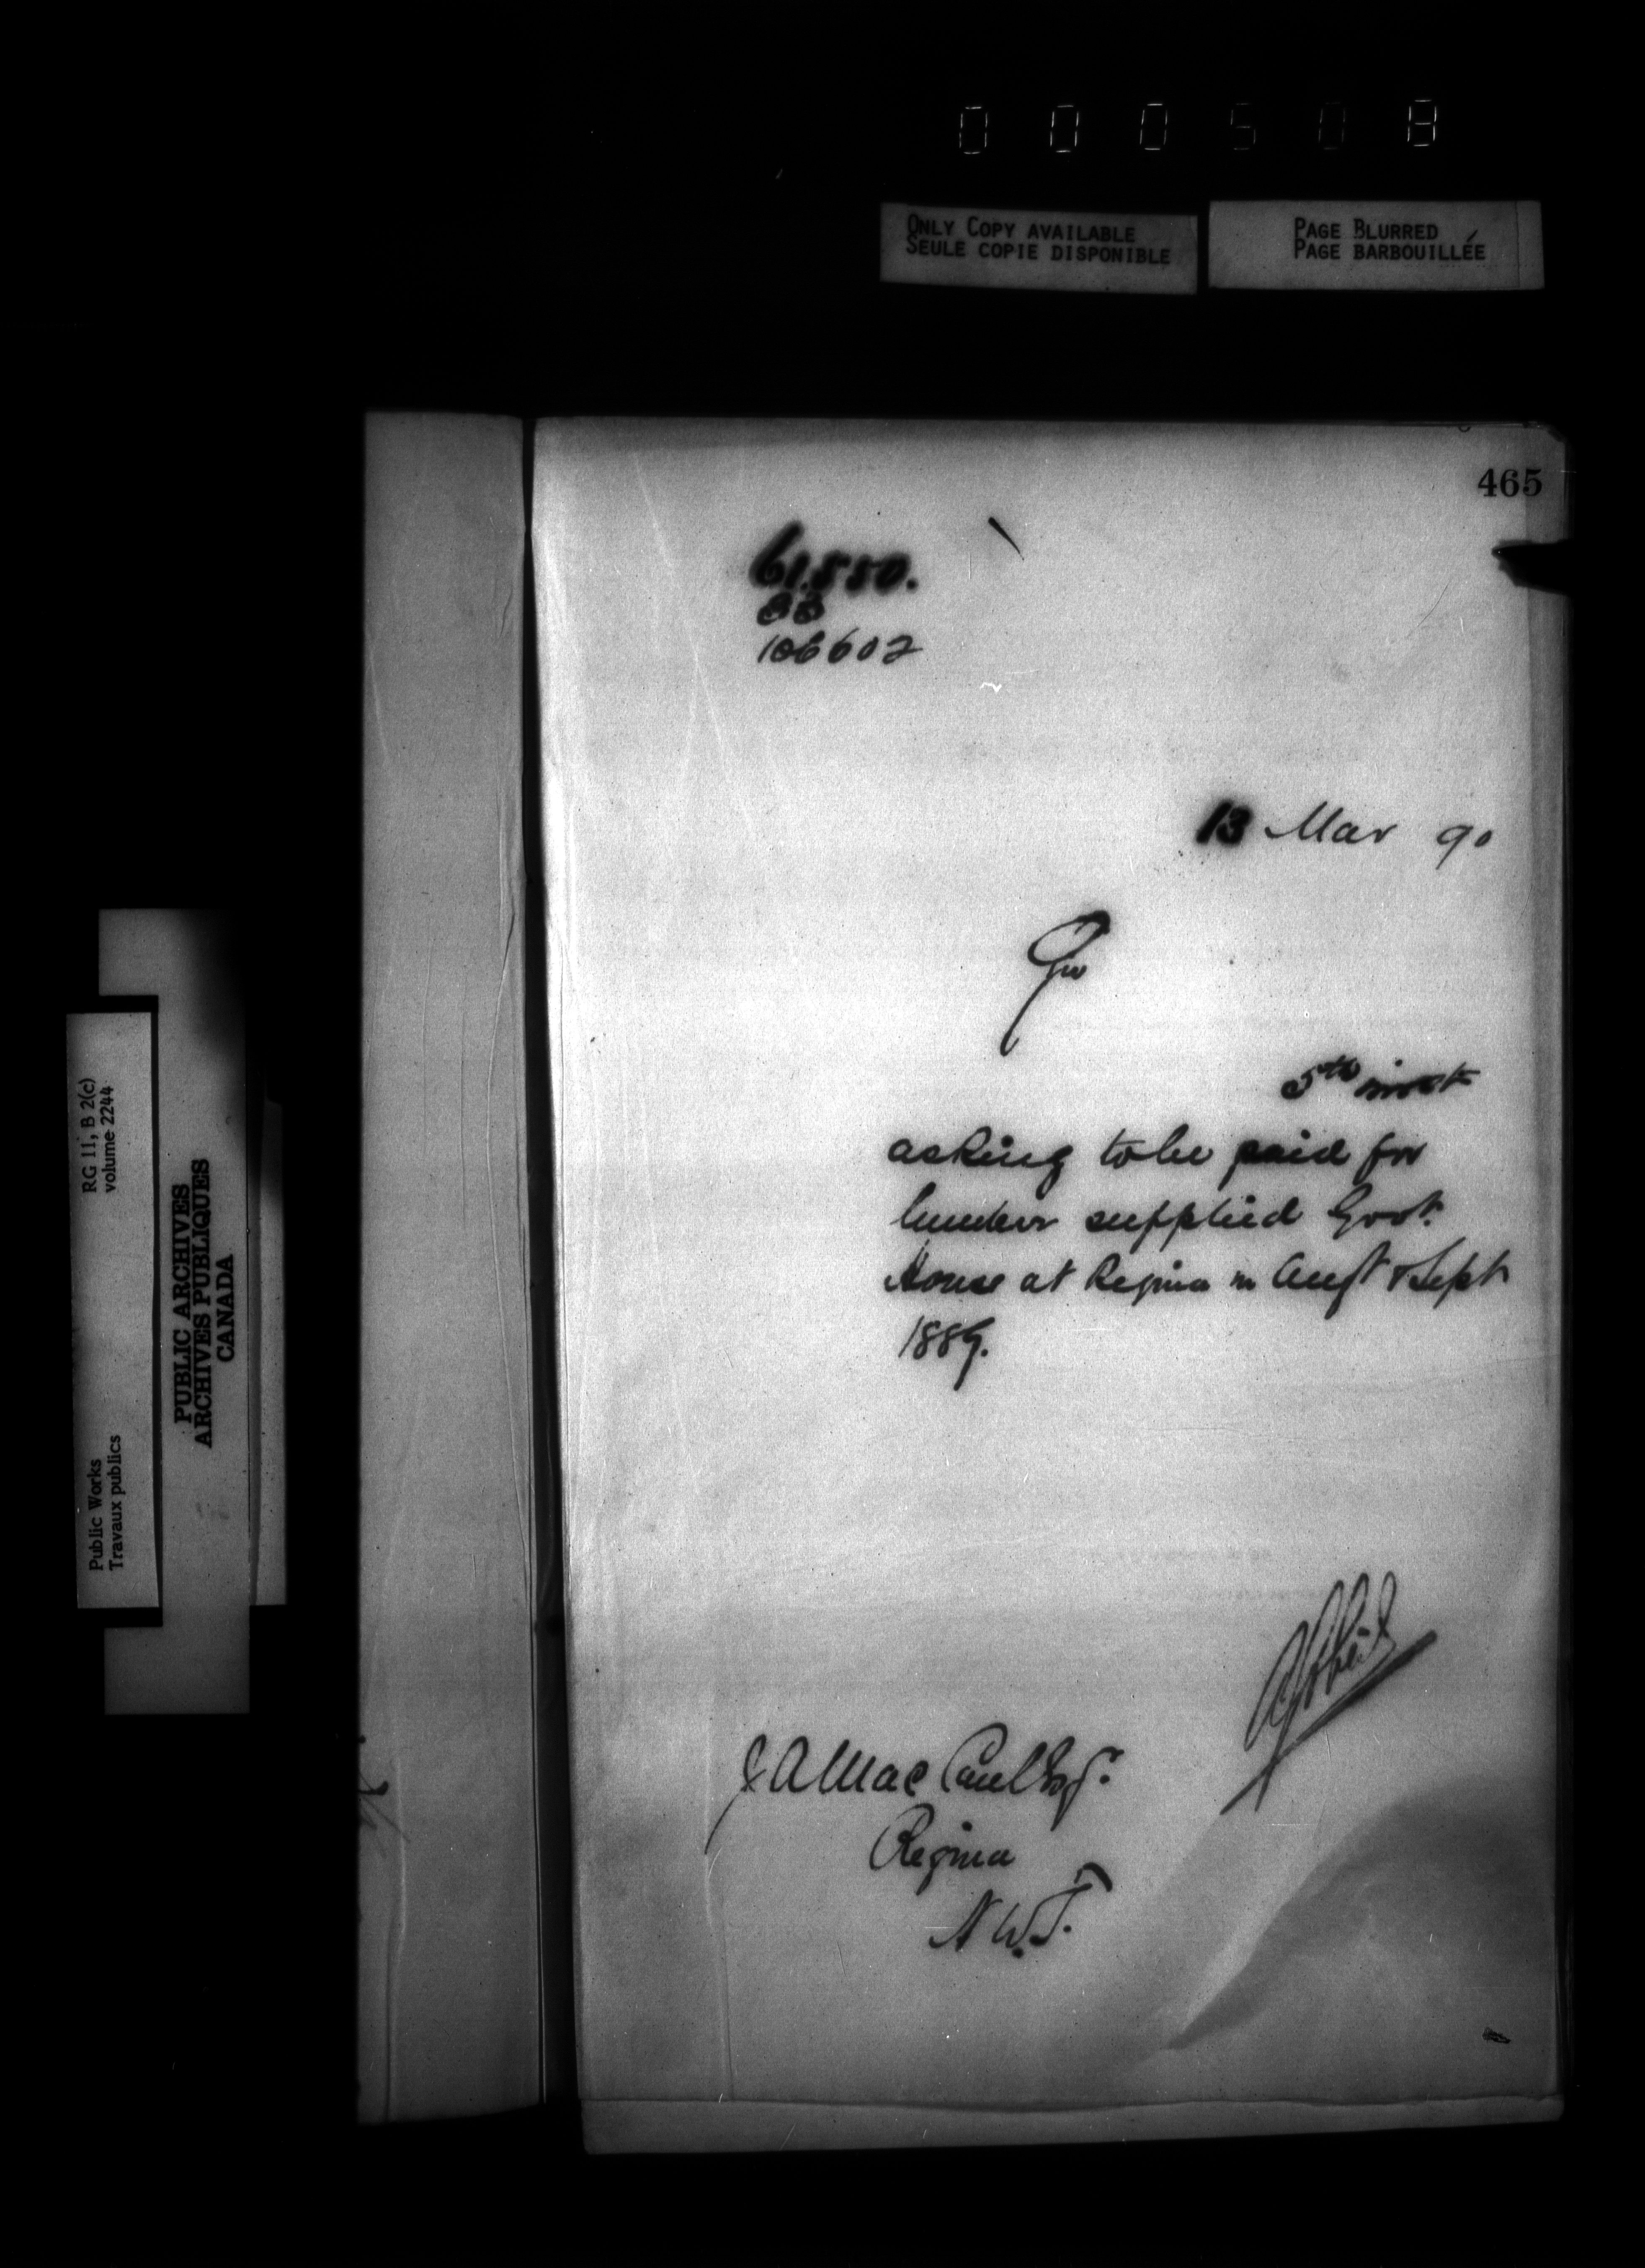 000508
ONLY COPY AVAILABLE
SEULE COPIE DISPONIBLE
PAGE BLURRED
PAGE BARBOUILLÉE
465
61.550.
106602
13 Mar 90
5th inst
asking to be paid for
lumber supplied Govt
House at Regina in Augt & Sept
1889.
J A Mac Caul Esqr.
Regina
N.W.T.
RG 11, B 2(c)
volume 2244
Public Works
Travaux publics
PUBLIC ARCHIVES
ARCHIVES PUBLIQUES
CANADA